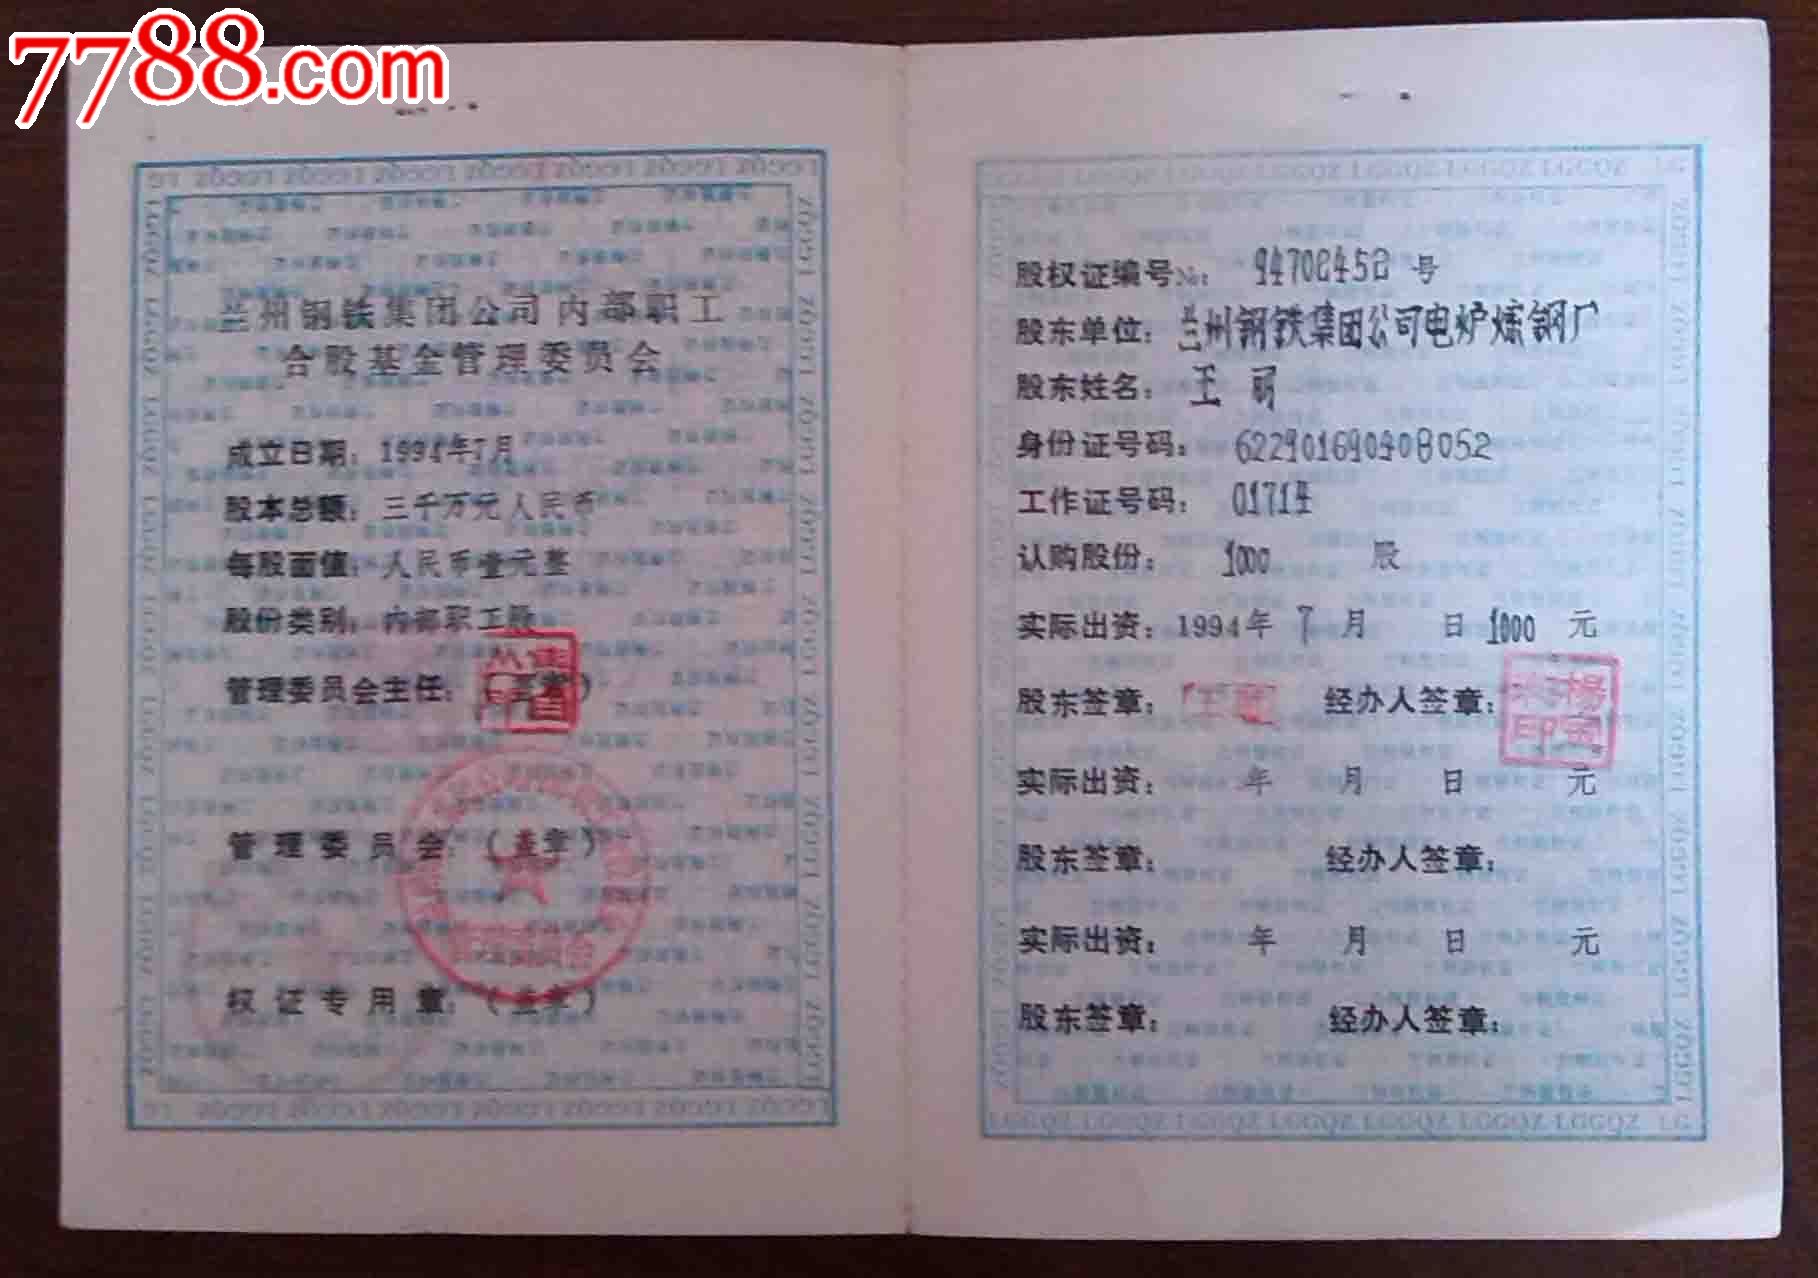 7788.com
兰州钢铁集团公司内部职工
合股基金管理委员会
成立日期：1994年7月
股本总额：三千万元人民币
每股面值：人民币壹元整
股份类别：内部职工股
管理委员会主任：
管理委员会：（盖章）
权证专用章：（盖章）
股权证编号№： 号
股东单位：兰州钢铁集团公司电炉炼钢厂
股东姓名：王丽
身份证号码：622901690408052
工作证号码：01714
认购股份：1000 股
实际出资：1994年 7月 日 1000 元
股东签章： 经办人签章：
实际出资： 年 月 日 元
股东签章： 经办人签章：
实际出资： 年 月 日 元
股东签章： 经办人签章：
LGGQZ LGGQZ LGGQZ LGGQZ LGGQZ LGGQZ LGGQZ LG